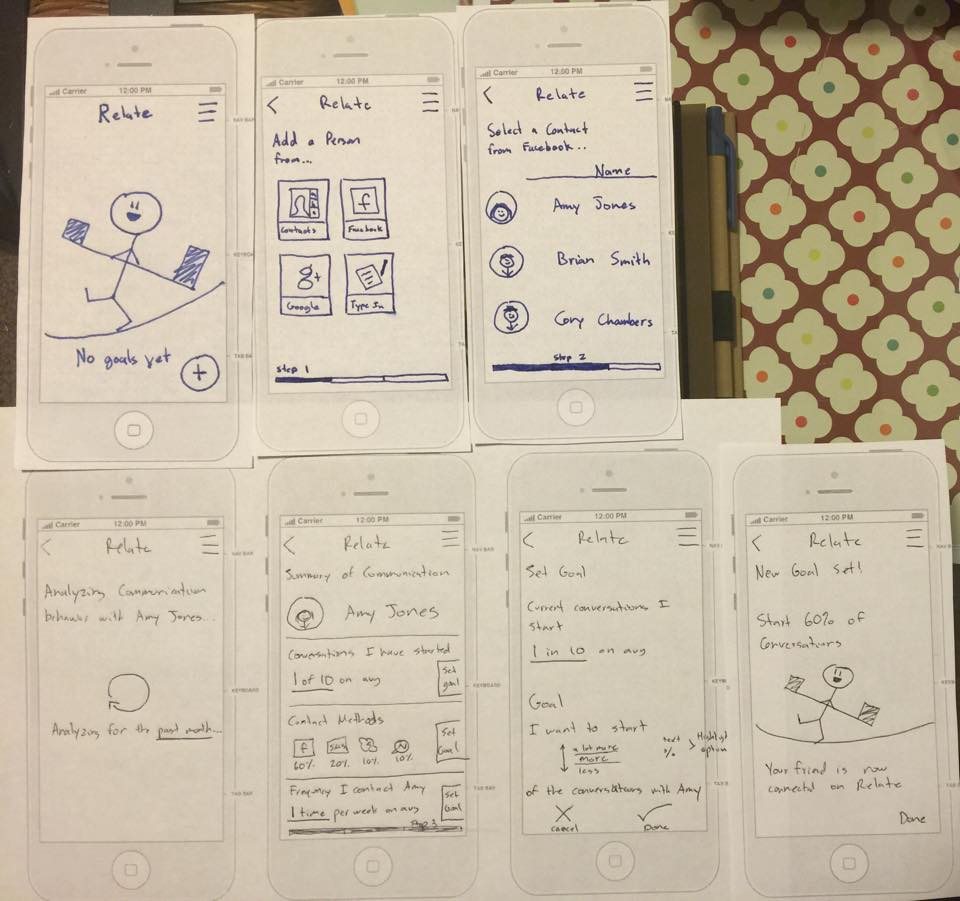 Carrier 12:00 PM
Relate
No goals yet
+
NAV BAR
TAB BA
Carrier 12:00 PM
Relate
Add a Person
from...
Contacts
f
Facebook
g+
Google
Type In
step 1
Carrier 12:00 PM
Relate
Select a Contact
from Facebook...
Name
Amy Jones
Brian Smith
Cory Chambers
step 2
Carrier 12:00 PM
Relate
Analyzing Communication
behavior with Amy Jones...
Analyzing for the past month...
NAV BAR
KEYBOARD
TAB BAR
Carrier 12:00 PM
Relate
Summary of Communication
Amy Jones
Conversations I have started
1 of 10 on avg
Set
goal
Contact Methods
Set
Goal
f
SMS
60%
20%
10%
10%
Frequency I contact Amy
1 time per week on avg
Set
Goal
NAV BAR
KEYBOARD
TAB BAR
Carrier 12:00 PM
Relate
Set Goal
Current conversations I
start
1 in 10 on avg
Goal
I want to start
a lot more
more
less
text
%
option
of the conversations with Amy
cancel
Done
Carrier 12:00 PM
Relate
New Goal Set!
Start 60% of
Conversations
Your friend is now
connected on Relate
Done
NAV BAR
TAB BAR